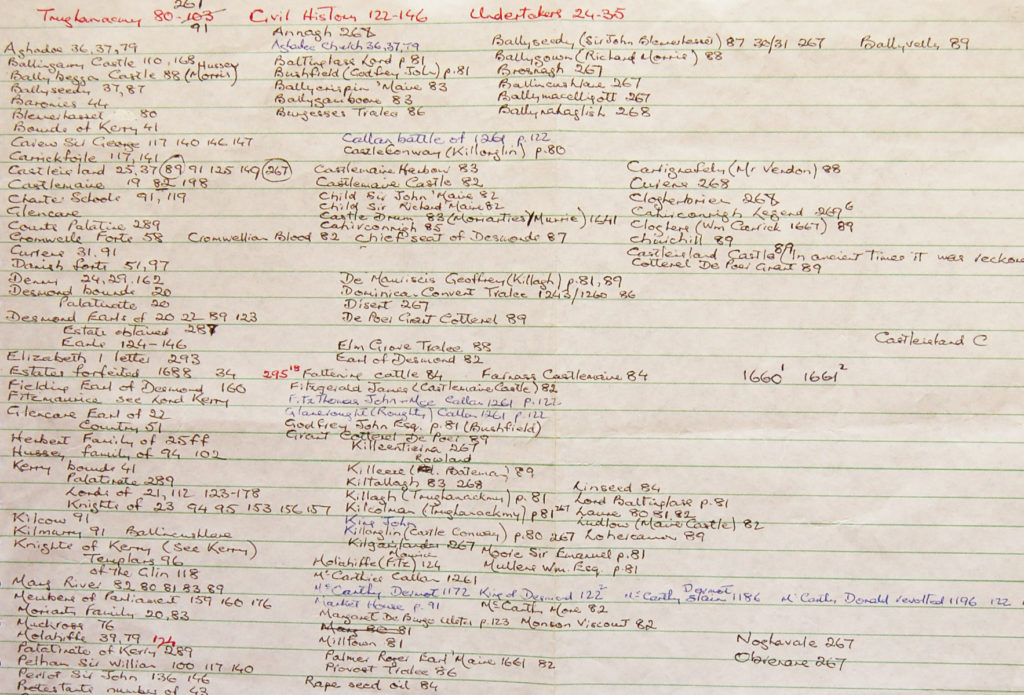 261
Trughanacmy 80-103 Civil History 122-146 Undertakers 24-35
91
Annagh 268
Aghadoe 36,37,79 Aghadoe Church 36,37,79 Ballyseedy (Sir John Blenerhasset) 87 30/31 267 Ballyvelly 89
Ballingarry Castle 110, 168 Hussey Baltinglass Lord p.81 Ballygown (Richard Morris) 88
Bally begga Castle 88 (Morris) Bushfield (Godfrey John) p.81 Brosnagh 267
Ballyseedy 37,87 Ballycrispin 'Maine 83 Ballincushlane 267
Baronies 44 Ballygamboone 83 Ballymacelligott 267
Blenerhasset 80 Burgesses Tralee 86 Ballynahaglish 268
Bounds of Kerry 41
Carew Sir George 117 140 146 147 Callan battle of 1261 p.122
Carrickfoile 117,141 Castle Conway (Killorglin) p.80
Castleisland 25,37 89 91 125 149 267 Castlemaine Harbour 83 Cartignafehy (Mr Verdon) 88
Castlemaine 19 82 198 Castlemaine Castle 82 Curiens 268
Charter Schools 91, 119 Child Sir John 'Maine 82 Clogherbrien 268
Glencare Child Sir Richard 'Maine 82 Cahirconnigh Legend 269 6
Counts Palatine 289 Castle Drum 83 (Moriarties/Murrie) 1641 Cloghers (Wm Carrick 1667) 89
Cahirconnigh 85
Cromwells Forts 58 Cromwellian Blood 82 Chief seat of Desmonds 87 Churchill 89
Curlens 31.91 Castleisland Castle 89 (In ancient times it was reckone
Danish forts 51,97 Cotterel De Poer Grant 89
Denny 24,29,162 De Mauriscis Geoffrey (Killagh) p.81,89
Desmond bounds 20 Dominican Convent Tralee 1243/1260 86
Palatinate 20 Disert 267
Desmond Earls of 20 22 89 123 De Poer Grant Cotterel 89
Estate obtained 287 Castleisland C
Earls 124-146 Elm Grove Tralee 88
Elizabeth 1 letter 293 Earl of Desmond 82
Estates forfeited 1688 34 295 18 Fattening cattle 84 Farnass Castlemaine 84 1660 1 1661 2
Fielding Earl of Desmond 160 Fitzgerald James (Castlemaine Castle) 82
Fitzmaurice see Lord Kerry FitzThomas John + Mce Callan 1261 p.122
Glencare Earl of 22 Glanerought (Roughty) Callan 1261 p.122
Country 51 Godfrey John Esq. p.81 (Bushfield)
Herbert Family of 25ff Grant Cotterel De Poer 89
Hussey family of 94 102 Killeentierna 267
Kerry bounds 41 Killeece (Rowland Bateman) 89
Palatinate 289 Kiltallagh 83 268 Linseed 84
Lords of 21, 112 123-178 Killagh (Trughanackmy) p.81 Lord Baltinglass p.81
Knights of 23 94 95 153 156 157 Kilcolman (Trughanackmy) p81 267 Laune 80 81 82
Kilcow 91 King John Ludlow (Maine Castle) 82
Kilmurry 91 Ballincushlane Killorglin (Castle Conway) p.80 267 Lohercannon 89
Knights of Kerry (See Kerry) 267 Moore Sir Emanuel p.81
Templars 96 Molahiffe (Fitz) Maurice 124 Mullens Wm. Esq. p.81
of the Glin 118 McCarthies Callan 1261
Mang River 82 80 81 83 89 McCarthy Dermot 1172 King of Desmond 122 2 McCarthy Dermot slain 1186 McCarthy Donald revolted 1196 122
Members of Parliament 159 160 176 Market House p.91 McCarthy More 82
Moriarty Family 20,83 Margaret De Burgo Ulster p.123 Monson Viscount 82
Muckross 76 Mang 80 81
Molahiffe 39,79 124 Milltown 81 Noghavale 267
Palatinate of Kerry 289 Palmer Roger Earl 'Maine 1661 82 Obrierane 267
Pelham Sir Willian 100 117 140 Provost Tralee 86
Perlot Sir John 136 146 Rape seed oil 84
Protestants number of 43